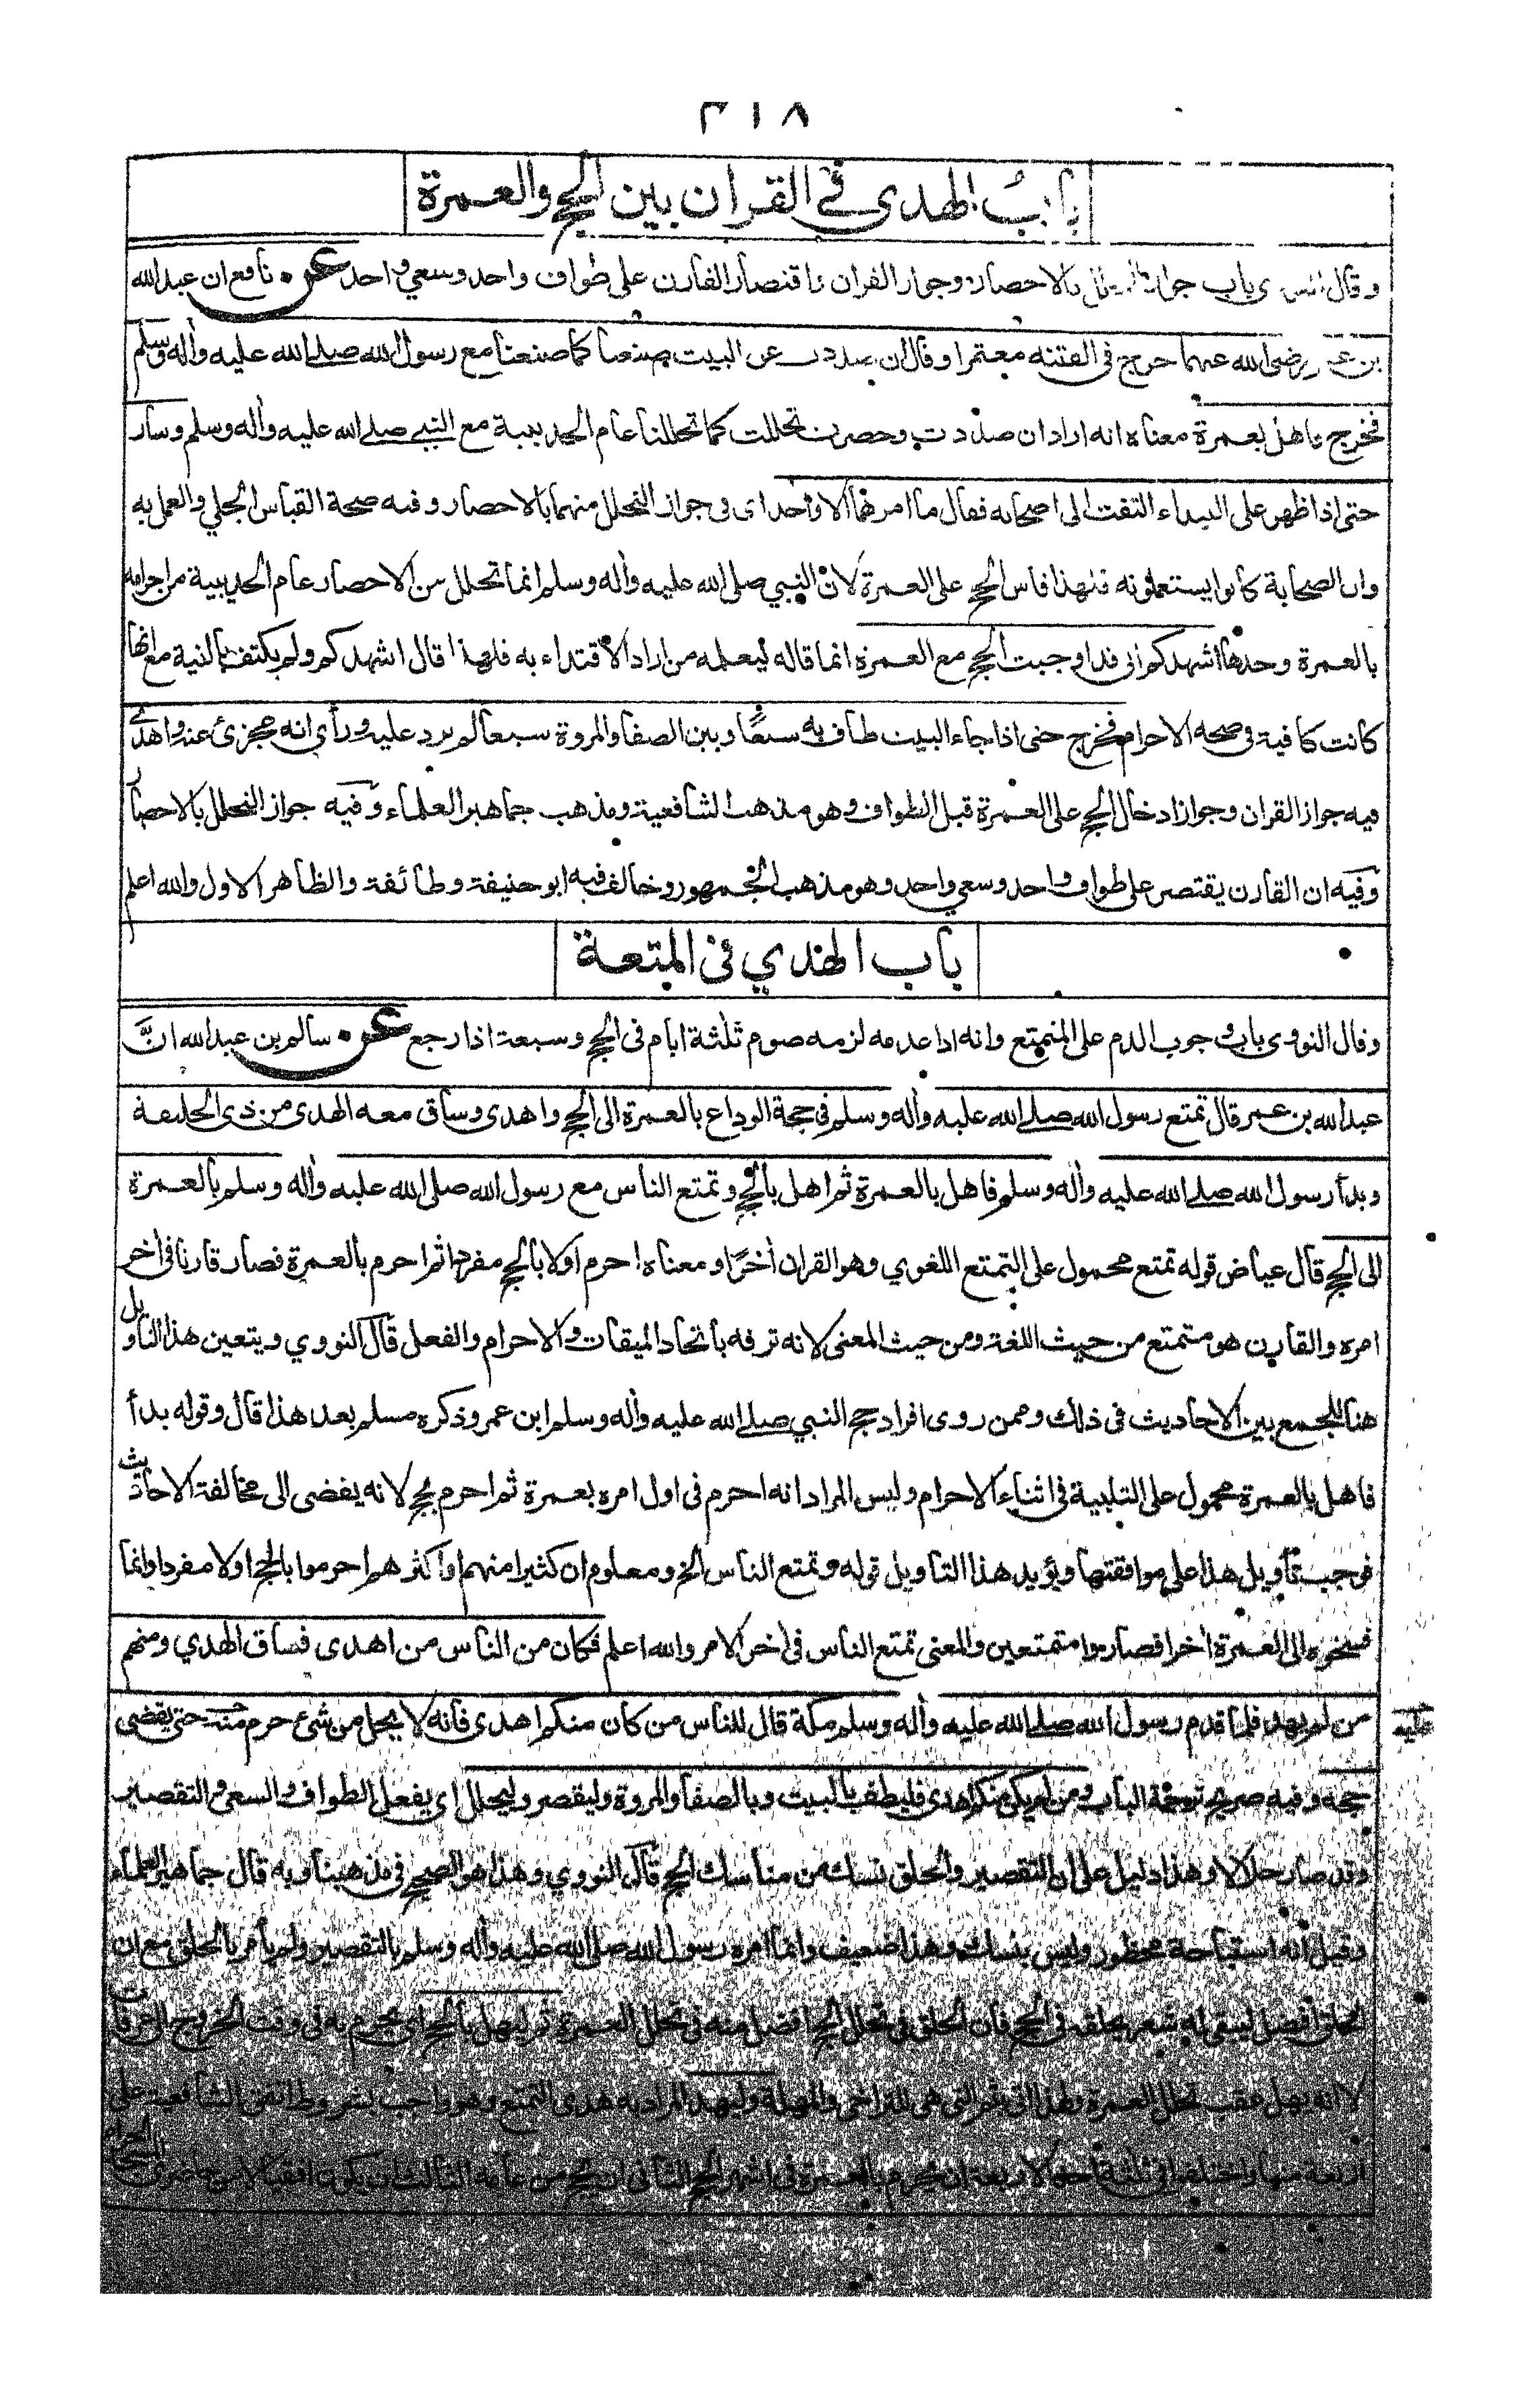 ٣١٨
باب الهدي في القران بين الحج والعمرة
وقال النووي باب جواز التحلل بالاحصار وجواز القران واقتصار القارن على طواف واحد وسعي واحد عن نافع ان عبدالله
بن عمر رضي الله عنهما خرج في الفتنه معتمرا وقال ان صددت عن البيت صنعنا كما صنعنا مع رسول الله صلى الله عليه وأله وسلم
فخرج فاهل بعمرة معناه انه اراد ان صددت وحصرت تحللت كما تحللنا عام الحديبية مع النبي صلى الله عليه وأله وسلم وسار
حتى اذا ظهر على البيداء التفت الى اصحابه فقال ما امرهما الا واحد اى في جواز التحلل منهما بالاحصار وفيه صحة القياس الجلي والعمل به
وان الصحابة كانوا يستعملونه فلهذا قاس الحج على العمرة لان النبي صلى الله عليه وأله وسلم انما تحلل من الاحصار عام الحديبية من احرامه
بالعمرة وحدها اشهدكم اني قد اوجبت الحج مع العمرة انما قاله ليعلمه من اراد الاقتداء به فلهذا قال اشهدكم ولم يكتف بالنية مع انها
كانت كافية في صحه الاحرام فخرج حتى اذا جاء البيت طاف به سبعًا وبين الصفا والمروة سبعا لم يزد عليه ورأى انه مجزئ عنه واهدى
فيه جواز القران وجواز ادخال الحج على العمرة قبل الطواف وهو مذهب الشافعية ومذهب جماهير العلماء وفيه جواز التحلل بالاحصار
وفيه ان القارن يقتصر على طواف واحد وسعي واحد وهو مذهب الجمهور وخالف فيه ابو حنيفة وطائفة والظاهر الاول والله اعلم
باب الهدي في المتعة
وقال النووى باب وجوب الدم على المتمتع وانه اذا عدمه لزمه صوم ثلثة ايام في الحج وسبعة اذا رجع عن سالم بن عبدالله انَّ
عبدالله بن عمر قال تمتع رسول الله صلى الله عليه وأله وسلم في حجة الوداع بالعمرة الى الحج واهدى وساق معه الهدى من ذى الحليفة
وبدأ رسول الله صلى الله عليه وأله وسلم فاهل بالعمرة ثم اهل بالحج وتمتع الناس مع رسول الله صلى الله عليه وأله وسلم بالعمرة
الى الحج قال عياض قوله تمتع محمول على التمتع اللغوي وهو القران أخرًا ومعناه احرم اولا بالحج مفردا ثم احرم بالعمرة فصار قارنا في أخر
امره والقارن هو متمتع من حيث اللغة ومن حيث المعنى لانه ترفه بأتحاد الميقات والاحرام والفعل قال النووي ويتعين هذا التاويل
هنا للجمع بين الاحاديث في ذلك وممن روى افراد حج النبي صلى الله عليه وأله وسلم ابن عمر وذكره مسلم بعد هذا قال وقوله بدأ
فاهل بالعمرة محمول على التلبية في اثناء الاحرام وليس المراد انه احرم في اول امره بعمرة ثم احرم بحج لانه يفضى الى مخالفة الاحاديث
فوجب تأويل هذا على موافقتها ويؤيد هذا التاويل قوله وتمتع الناس الخ ومعلوم ان كثيرا منهم او اكثرهم احرموا بالحج اولا مفردا وانما
فسخوه الى العمرة أخرا فصاروا متمتعين والمعنى تمتع الناس في أخر الامر والله اعلم فكان من الناس من اهدى فساق الهدي ومنهم
من لم يهد فلما قدم رسول الله صلى الله عليه وأله وسلم مكة قال للناس من كان منكم اهدى فأنه لا يحل من شئ حرم منه حتى يقضى
عليه
حجه وفيه صريح ترجمة الباب ومن لم يكن منكم اهدى فليطف بالبيت وبالصفا والمروة وليقصر وليحلل اى يفعل الطواف والسعى والتقصير
وقد صار حلالا وهذا دليل على ان التقصير والحلق نسك من مناسك الحج قال النووي وهذا هو الصحيح في مذهبنا وبه قال جماهير العلماء
وقيل انه استباحة محظور وليس بنسك وهذا ضعيف وانما امره رسول الله صلى الله عليه وأله وسلم بالتقصير ولم يأمر بالحلق مع ان
الحلق افضل ليبقى له شعر يحلقه في الحج فان الحلق في تحلل الحج افضل منه في تحلل العمرة ثم ليهل بالحج اى يحرم به في وقت الخروج الى عرفات
لا انه يهل عقب تحلل العمرة ولهذا اتى بثم التي هي للتراخى والمهلة وليهد المراد به هدى التمتع وهو واجب بشروط اتفق الشافعية على
اربعة منها واختلفوا في ثلثة احد الاربعة ان يحرم بالعمرة في اشهر الحج الثاني ان يحج من عامه الثالث ان يكون افقيا لا من حاضرى المسجد الحرام